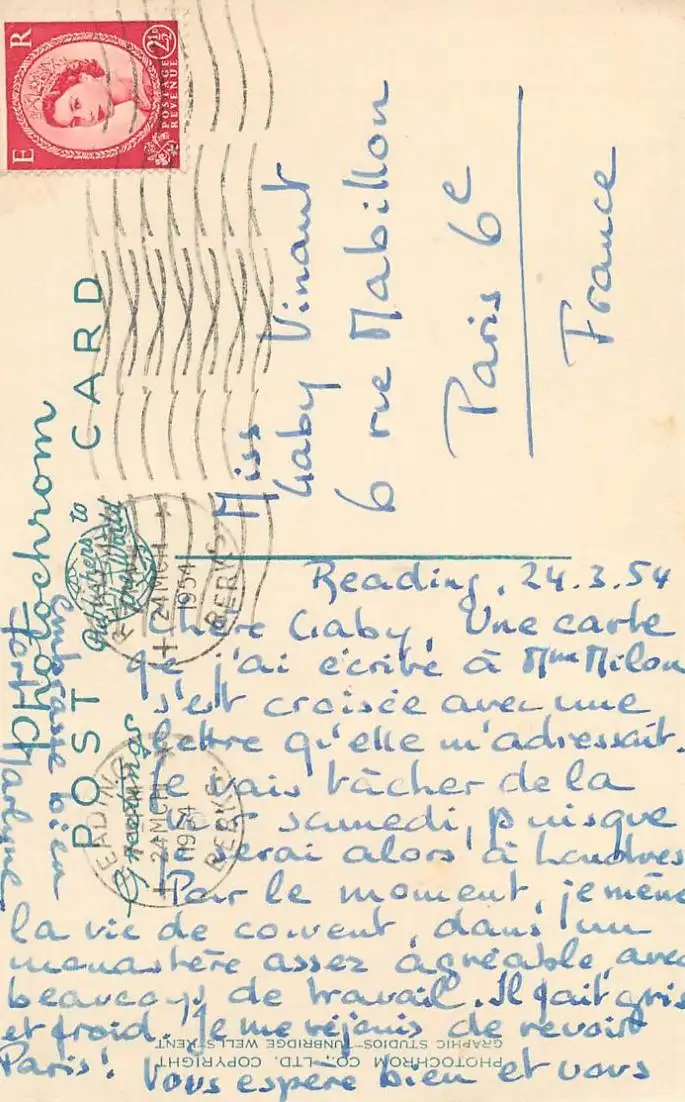 E R
POSTAGE
REVENUE
2½D
Photochrom
POST CARD
Greetings
Publishers to
the World
READING
24 MCH
1954
BERKS.
READING
24 MCH
1954
BERKS.
Miss
Gaby Vinant
6 rue Mabillon
Paris 6e
France
Reading, 24.3.54
Chère Gaby, Une carte
que j'ai écrite à Mme Milon
s'est croisée avec une
lettre qu'elle m'adressait.
Je vais tâcher de la
voir samedi, puisque
je serai alors à Londres
Pour le moment, je mène
la vie de couvent, dans un
monastère assez agréable, avec
beaucoup de travail. Il fait gris
et froid. Je me réjouis de revoir
Paris! Vous espère bien et vous
embrasse bien
fort
PHOTOCHROM CO., LTD. COPYRIGHT
GRAPHIC STUDIOS-TUNBRIDGE WELLS-KENT